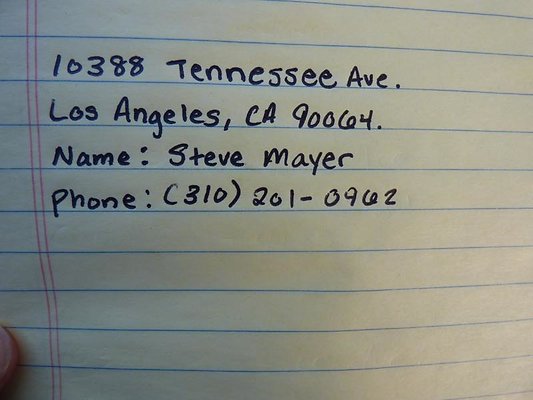 10388 Tennessee Ave.
Los Angeles, CA 90064.
Name: Steve Mayer
Phone: (310) 201-0962